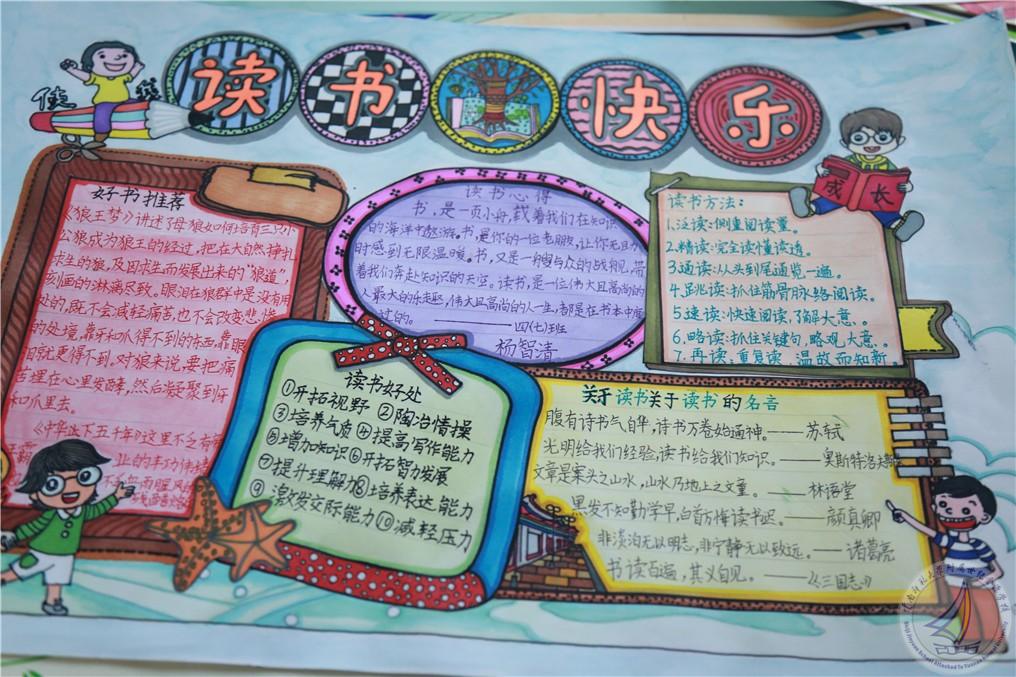 使我
读书快乐
好书推荐
《狼王梦》讲述了母狼如何培育三只小
公狼成为狼王的经过,把在大自然挣扎
求生的狼,及因求生而发展出来的“狼道”,
刻画的淋痛尽致。眼泪在狼群中是没有用
处的,既不会减轻痛苦,也不会改变悲惨
的处境,靠牙和爪得不到的东西,靠眼
泪就更得不到,对狼来说,要把痛
苦埋在心里发酵,然后凝聚到牙
和爪里去。
《中华上下五千年》这里不乏有
让的丰功伟绩
读书心得
书,是一页小舟,载着我们在知识
的海洋中遨游。书,是你的一位老朋友,让你无
时感到无限温暖。书,又是一艘与众的战舰,带
着我们奔赴知识的天空。读书,是一位伟大且高尚的
人最大的乐趣,伟大且高尚的人一生,都是在书本中度
过的。————四(七)班
杨智清
成长
读书方法:
1.泛读:侧重阅读量。
2.精读:完全读懂读透。
3通读:从头到尾通览一遍。
4.跳读:抓住筋骨脉络阅读。
5速读:快速阅读,了解大意。
6.略读:抓住关键句,略观大意。
7.再读:重复读 温故而知新
读书好处
①开拓视野 ②陶冶情操
③培养气质 ④提高写作能力
⑤增加知识 ⑥开拓智力发展
⑦提升理解力 ⑧培养表达能力
⑨激发交际能力 ⑩减轻压力
关于读书关于读书的名言
腹有诗书气自华,诗书万卷始通神。——苏轼
光明给我们经验,读书给我们知识。——奥斯特洛夫斯
文章是案头之山水,山水乃地上之文章。——林语堂
黑发不知勤学早,白首方悔读书迟。——颜真卿
非淡泊无以明志,非宁静无以致远。——诸葛亮
书读百遍,其义自见。——《三国志》